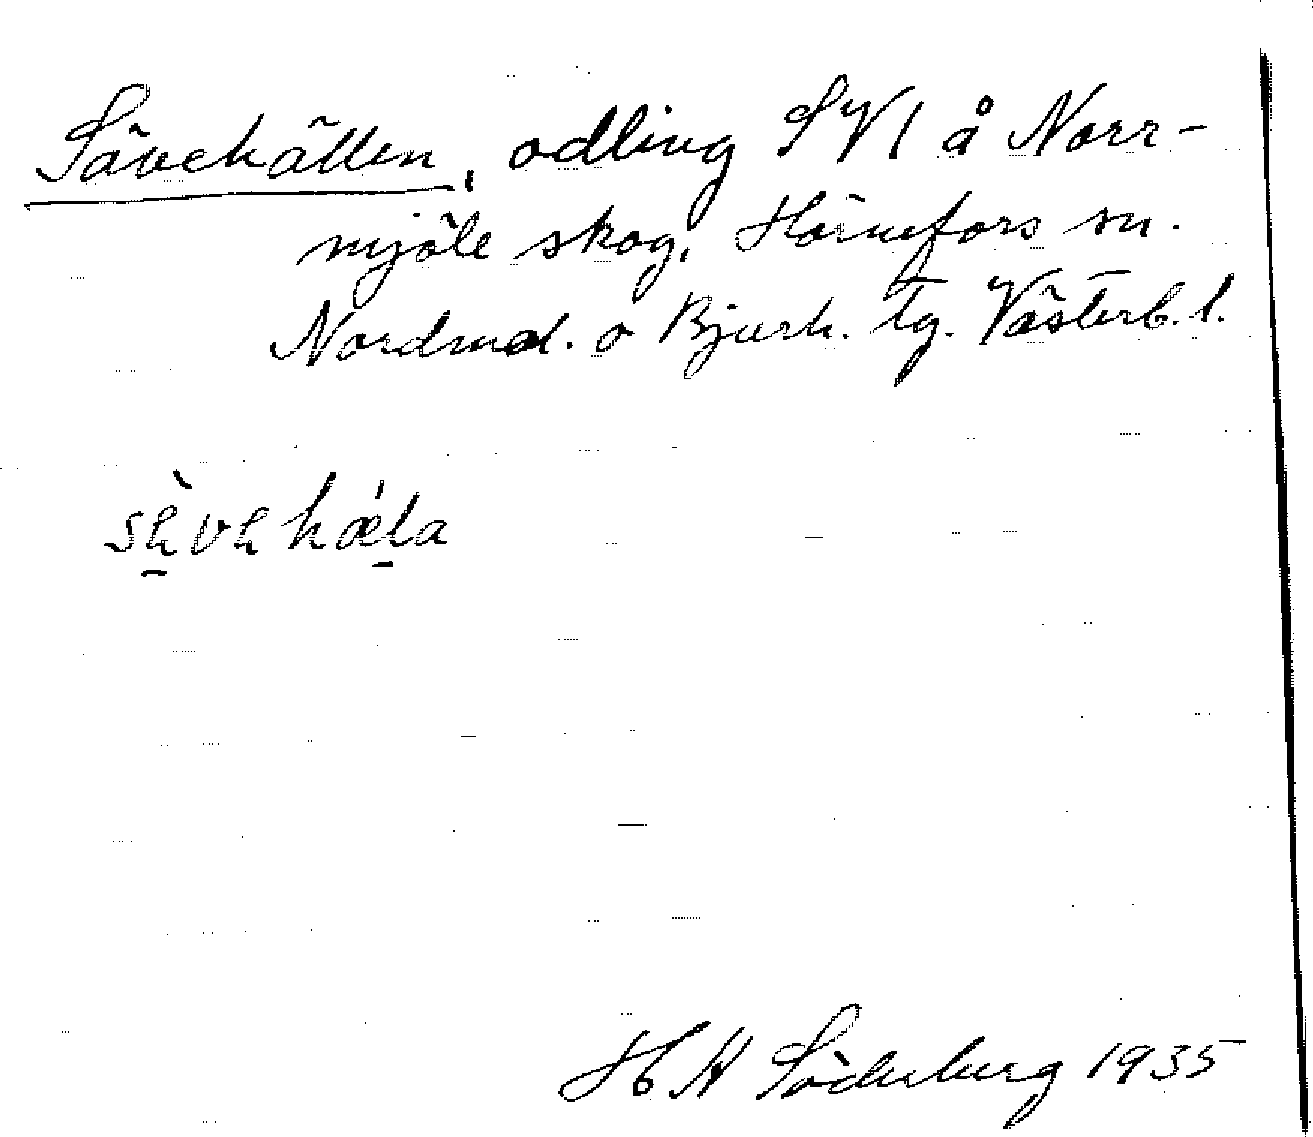 Sävehällen, odling SV l å Norr-
mjöle skog, Hörnefors sn.
Nordmal. o Bjurh. tg. Västerb. l.
H H Söderberg 1935